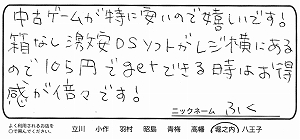 中古ゲームが特に安いので嬉しいです!
箱なし激安DSソフトがレジ横にある
ので105円でgetできる時はお得
感が倍々です!
ニックネーム ふく
よく利用されるお店を
○で囲んでください。 立川 小作 羽村 昭島 青梅 高幡 堀之内 八王子